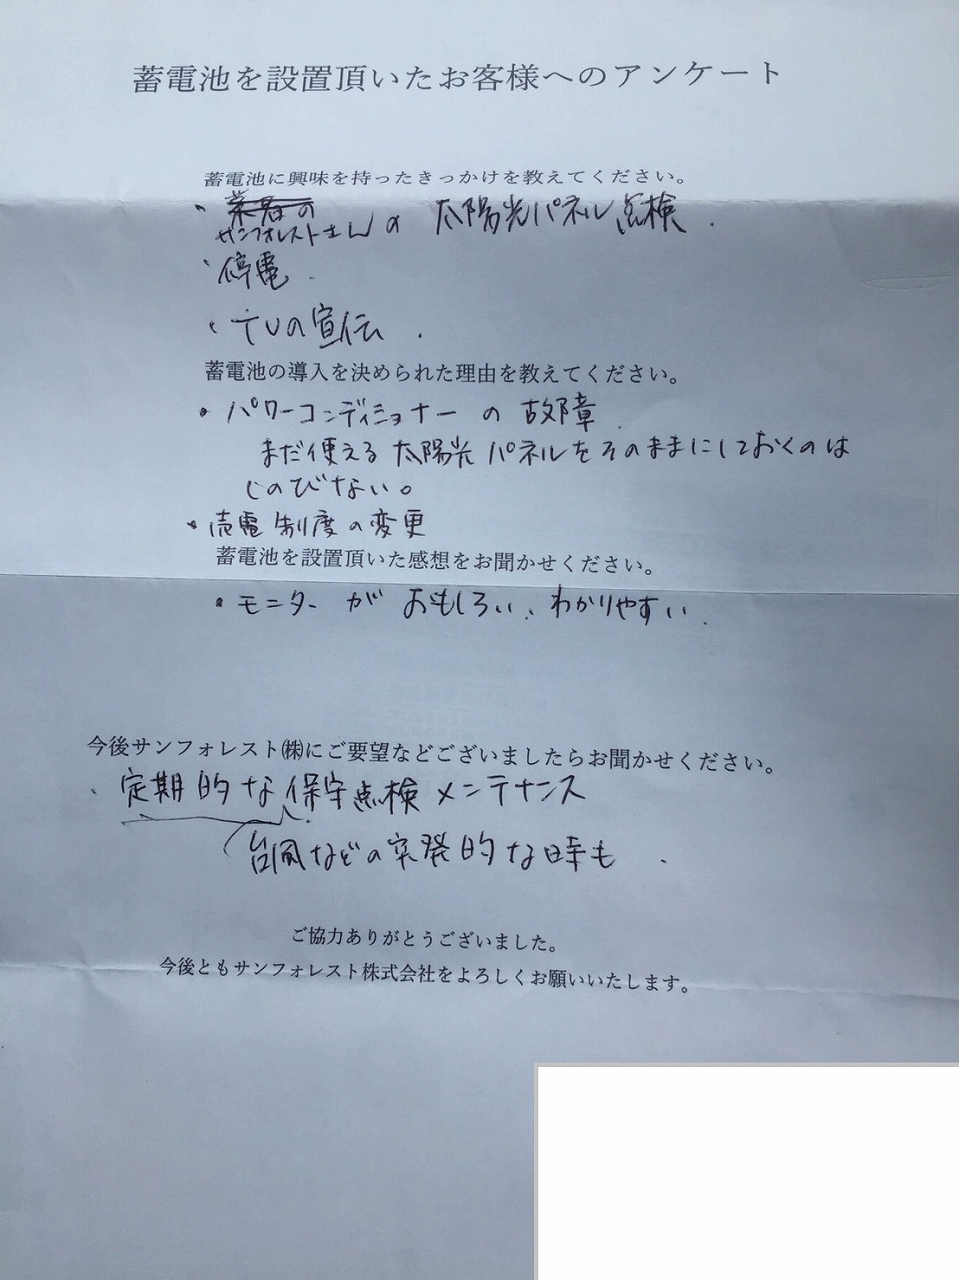 蓄電池を設置頂いたお客様へのアンケート
蓄電池に興味を持ったきっかけを教えてください。
・サンフォレストさんの 太陽光パネル点検.
・停電.
・TVの宣伝.
蓄電池の導入を決められた理由を教えてください。
・パワーコンディショナーの故障.
まだ使える太陽光パネルをそのままにしておくのは
しのびない。
・売電制度の変更
蓄電池を設置頂いた感想をお聞かせください。
・モニターがおもしろい、わかりやすい.
今後サンフォレスト㈱にご要望などございましたらお聞かせください。
・定期的な保守点検メンテナンス
台風などの突発的な時も.
ご協力ありがとうございました。
今後ともサンフォレスト株式会社をよろしくお願いいたします。